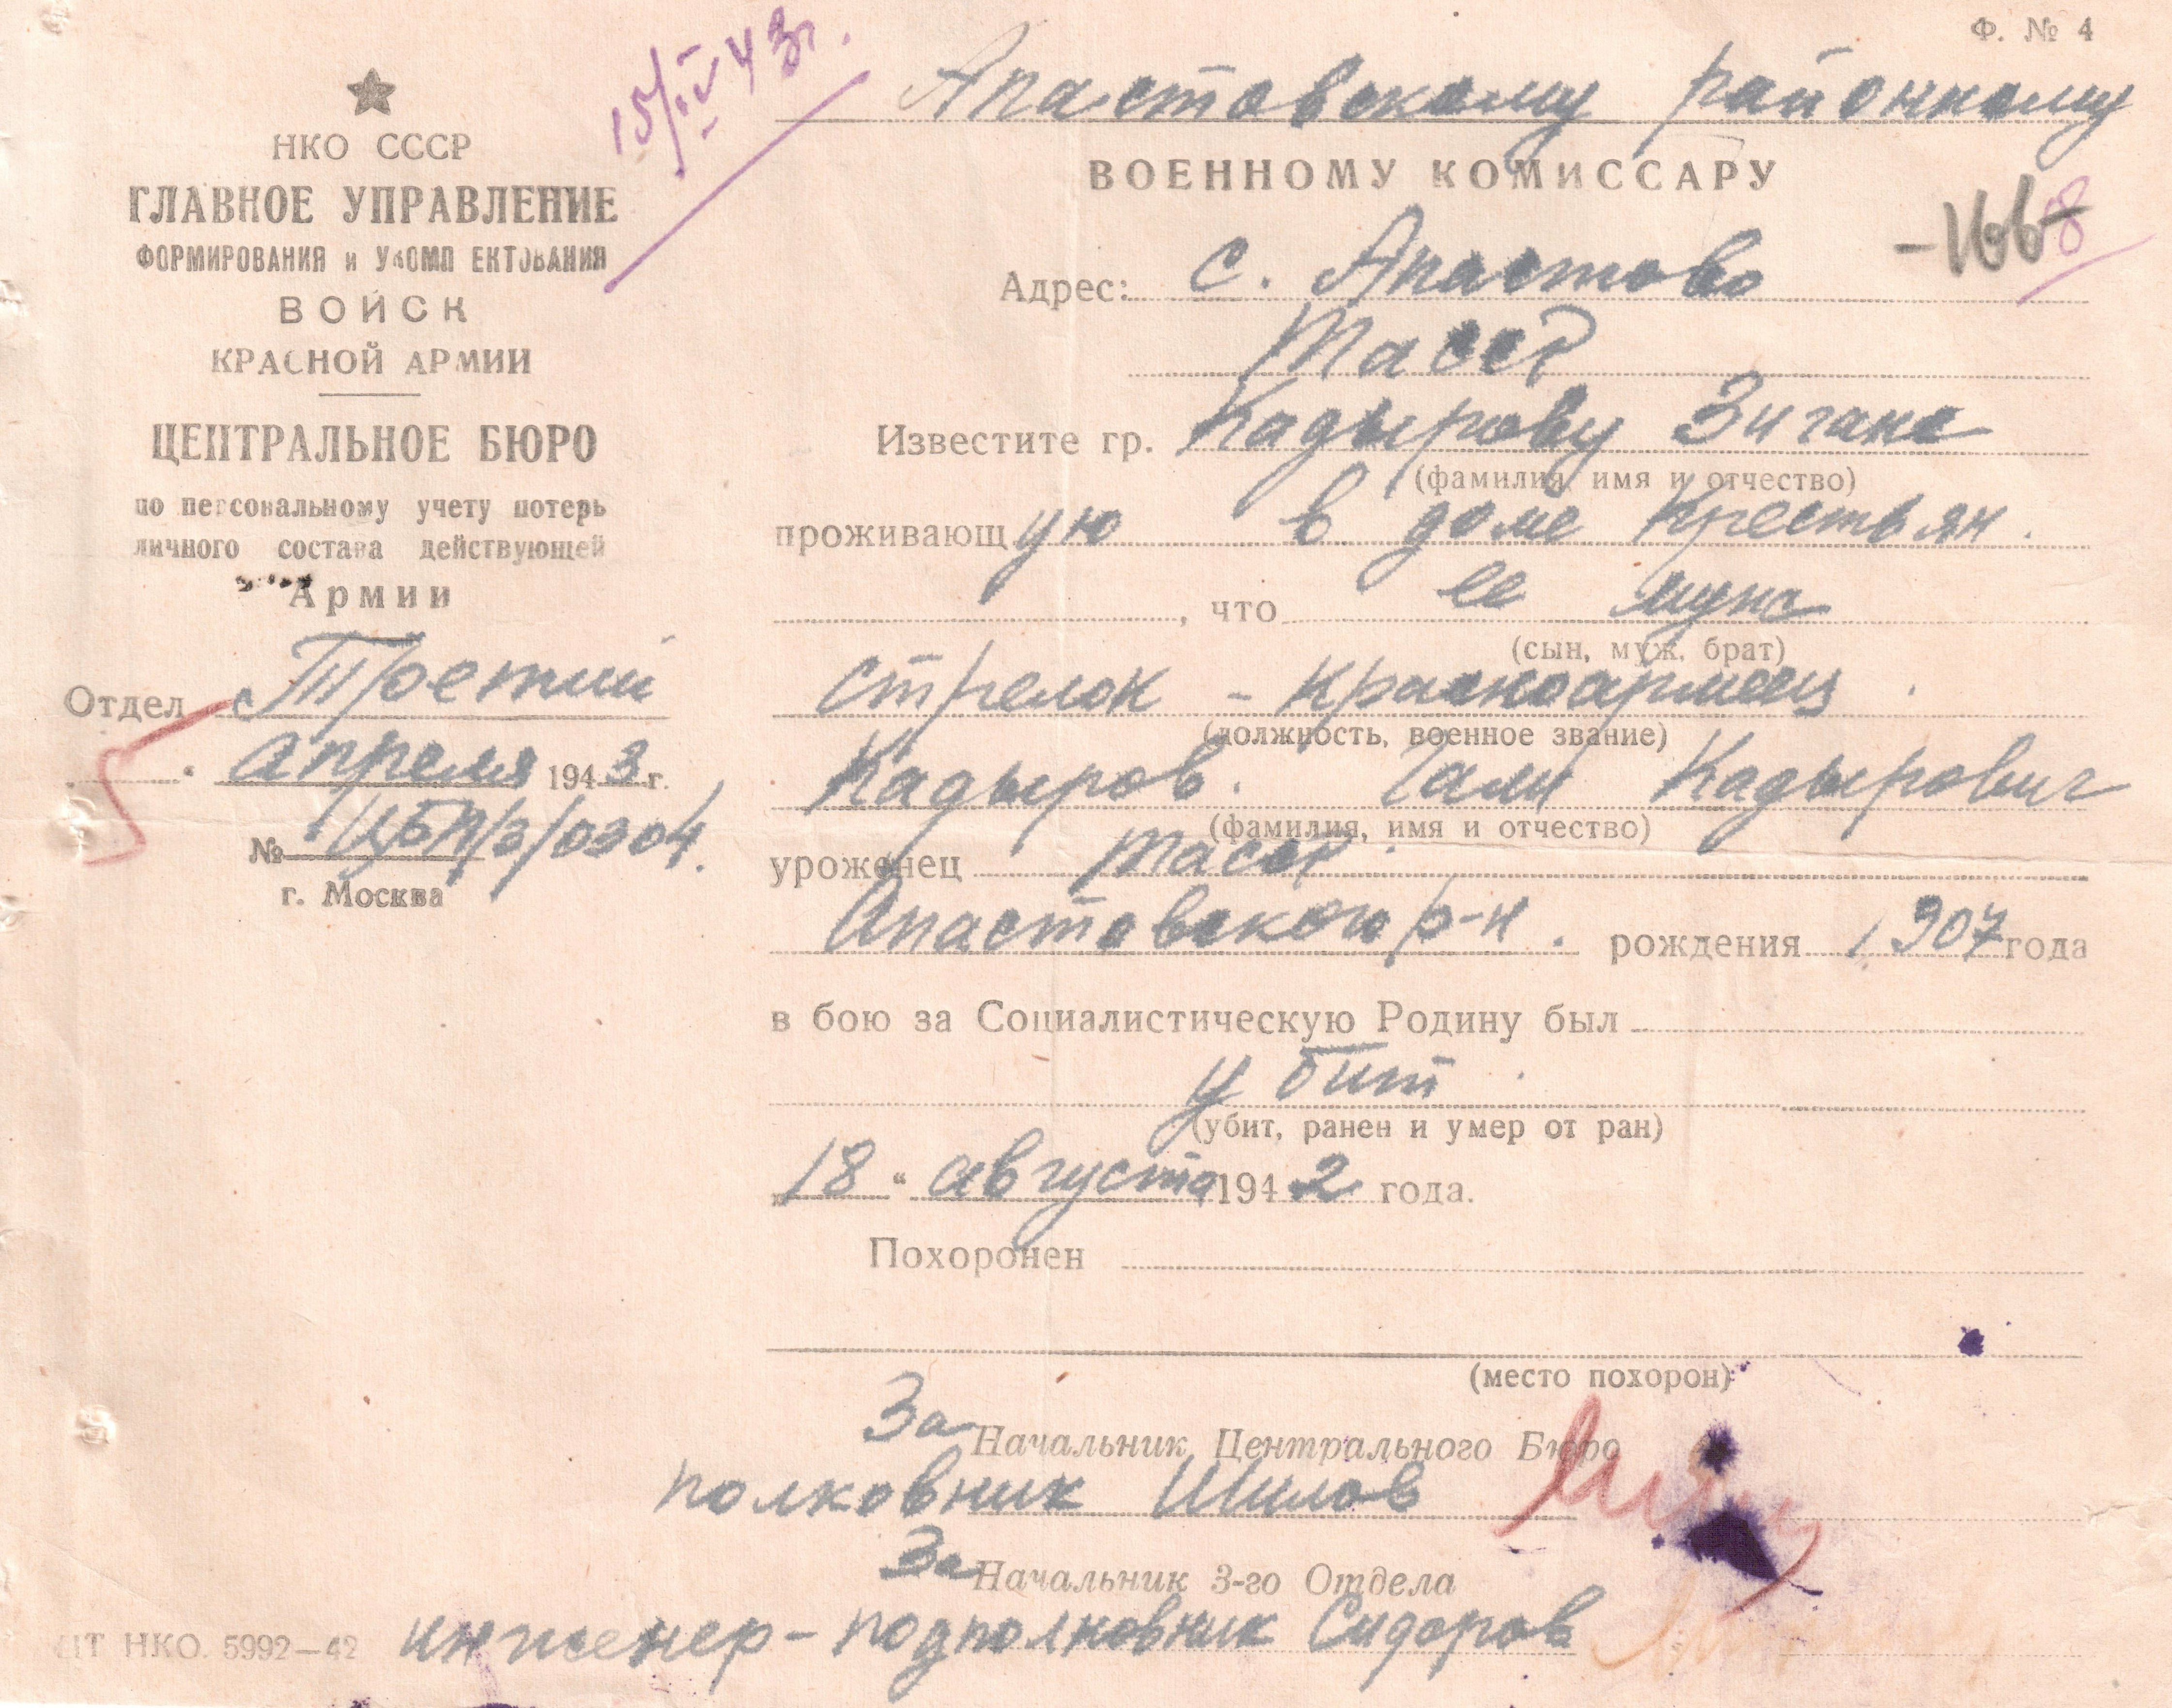 Ф. № 4
15/IV-43г.
НКО СССР
ГЛАВНОЕ УПРАВЛЕНИЕ
ФОРМИРОВАНИЯ и УКОМП ЕКТОВАНИЯ
ВОЙСК
КРАСНОЙ АРМИИ
ЦЕНТРАЛЬНОЕ БЮРО
по персональному учету потерь
личного состава действующей
Армии
Отдел Третий
5 " апреля 1943 г.
№ ЦБП/3/0304.
г. Москва
Апастовскому районному
ВОЕННОМУ КОМИССАРУ
-166-
8
Адрес: с. Апастово
ТАССР
Известите гр. Кадырову Зигана
(фамилия, имя и отчество)
проживающую в доме Крестьян.
, что ее муж
(сын, муж, брат)
стрелок - красноармеец.
(должность, военное звание)
Кадыров. Гали Кадырович
(фамилия, имя и отчество)
уроженец ТАССР.
Апастовского р-н. рождения 1907 года
в бою за Социалистическую Родину был
убит.
(убит, ранен и умер от ран)
„18" августа 1942 года.
Похоронен
(место похорон)
За Начальник Центрального Бюро
полковник Шилов
За Начальник 3-го Отдела
инженер-подполковник Сидоров
НКО. 5992—42